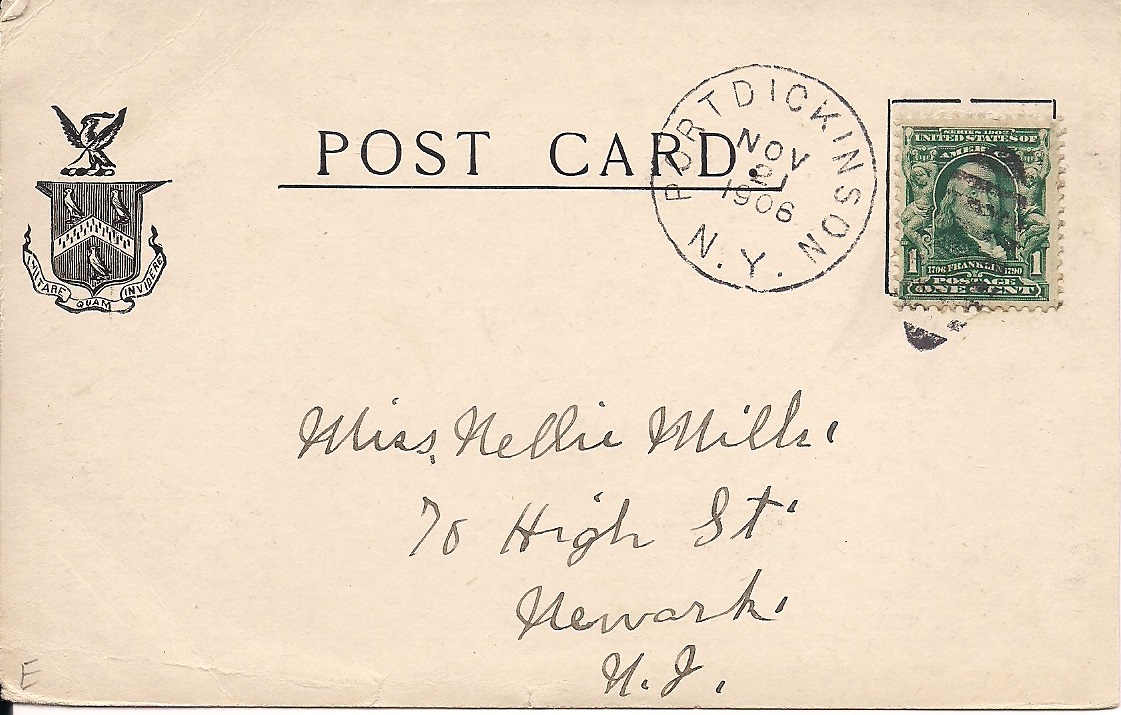 POST CARD
PORT DICKINSON
NOV
1906
N.Y.
SERIES 1902
UNITED STATES OF
AMERICA
1 1706 FRANKLIN 1790 1
POSTAGE
ONE CENT
QUAM
Miss, Nellie Mills.
70 High St.
Newark.
N. J.
E